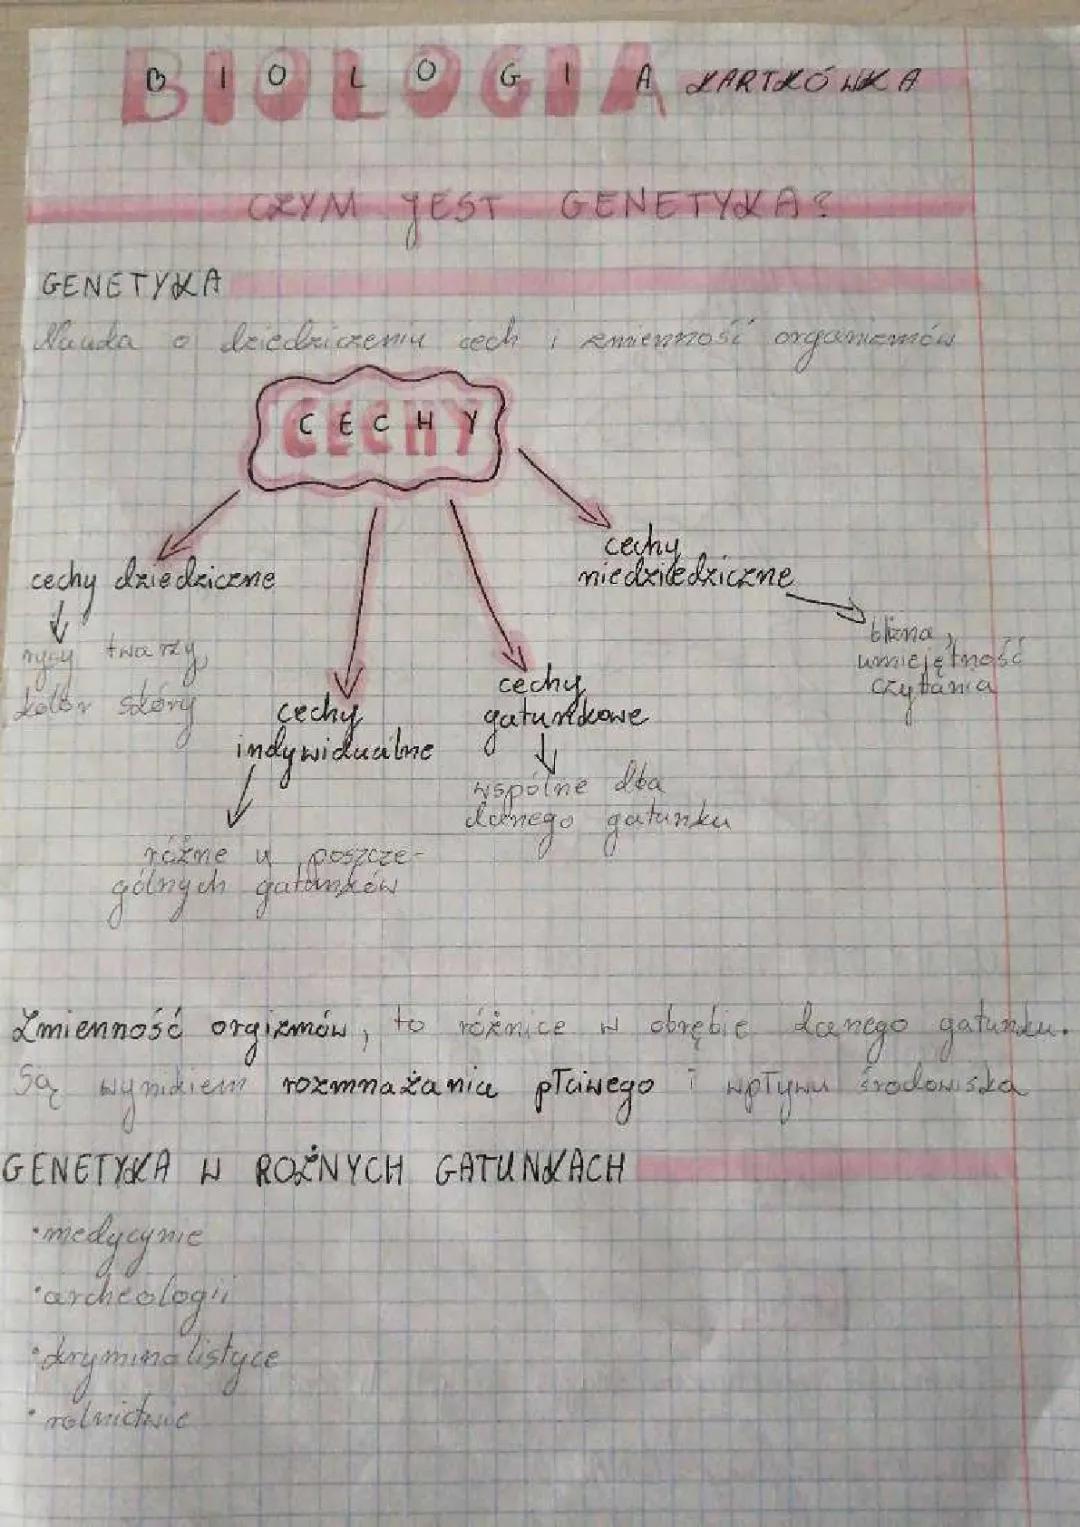 BIOLOGIA KARTKÓWKA
CZYM JEST GENETYKA?
GENETYKA
Nauka o dziedziczeniu cech i zmienność organizmów
CECHY
cechy dziedziczne
rysy twarzy,
kolor skóry
cechy
indywidualne
różne u poszcze-
gólnych gatunków
cechy
gatunkowe
wspólne dla
danego gatunku
cechy
niedziedziczne
blizna,
umiejętność
czytania
Zmienność orgizmów, to różnice w obrębie danego gatunku.
Są wynikiem rozmnażania płciwego i wpływu środowiska
GENETYKA W ROŻNYCH GATUNKACH
•medycynie
•archeologii
•kryminalistyce
•rolnictwie